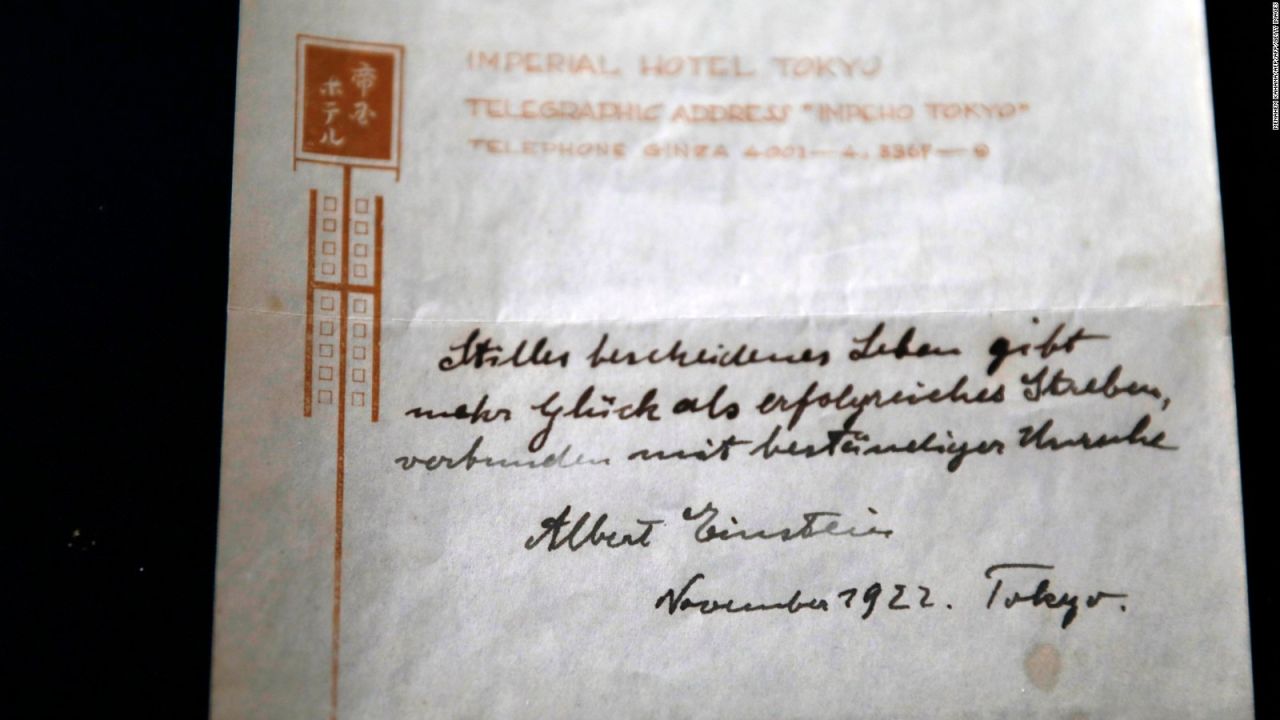 帝国
ホテル
IMPERIAL HOTEL TOKYO
TELEGRAPHIC ADDRESS "IMPEHO TOKYO"
TELEPHONE GINZA 4001—4,
Stilles bescheidenes Leben gibt
mehr Glück als erfolgreiches Streben,
verbunden mit beständiger Unruhe
Albert Einstein
November 1922. Tokyo.
MENAHEM KAHANA/AFP/AFP/Getty Images